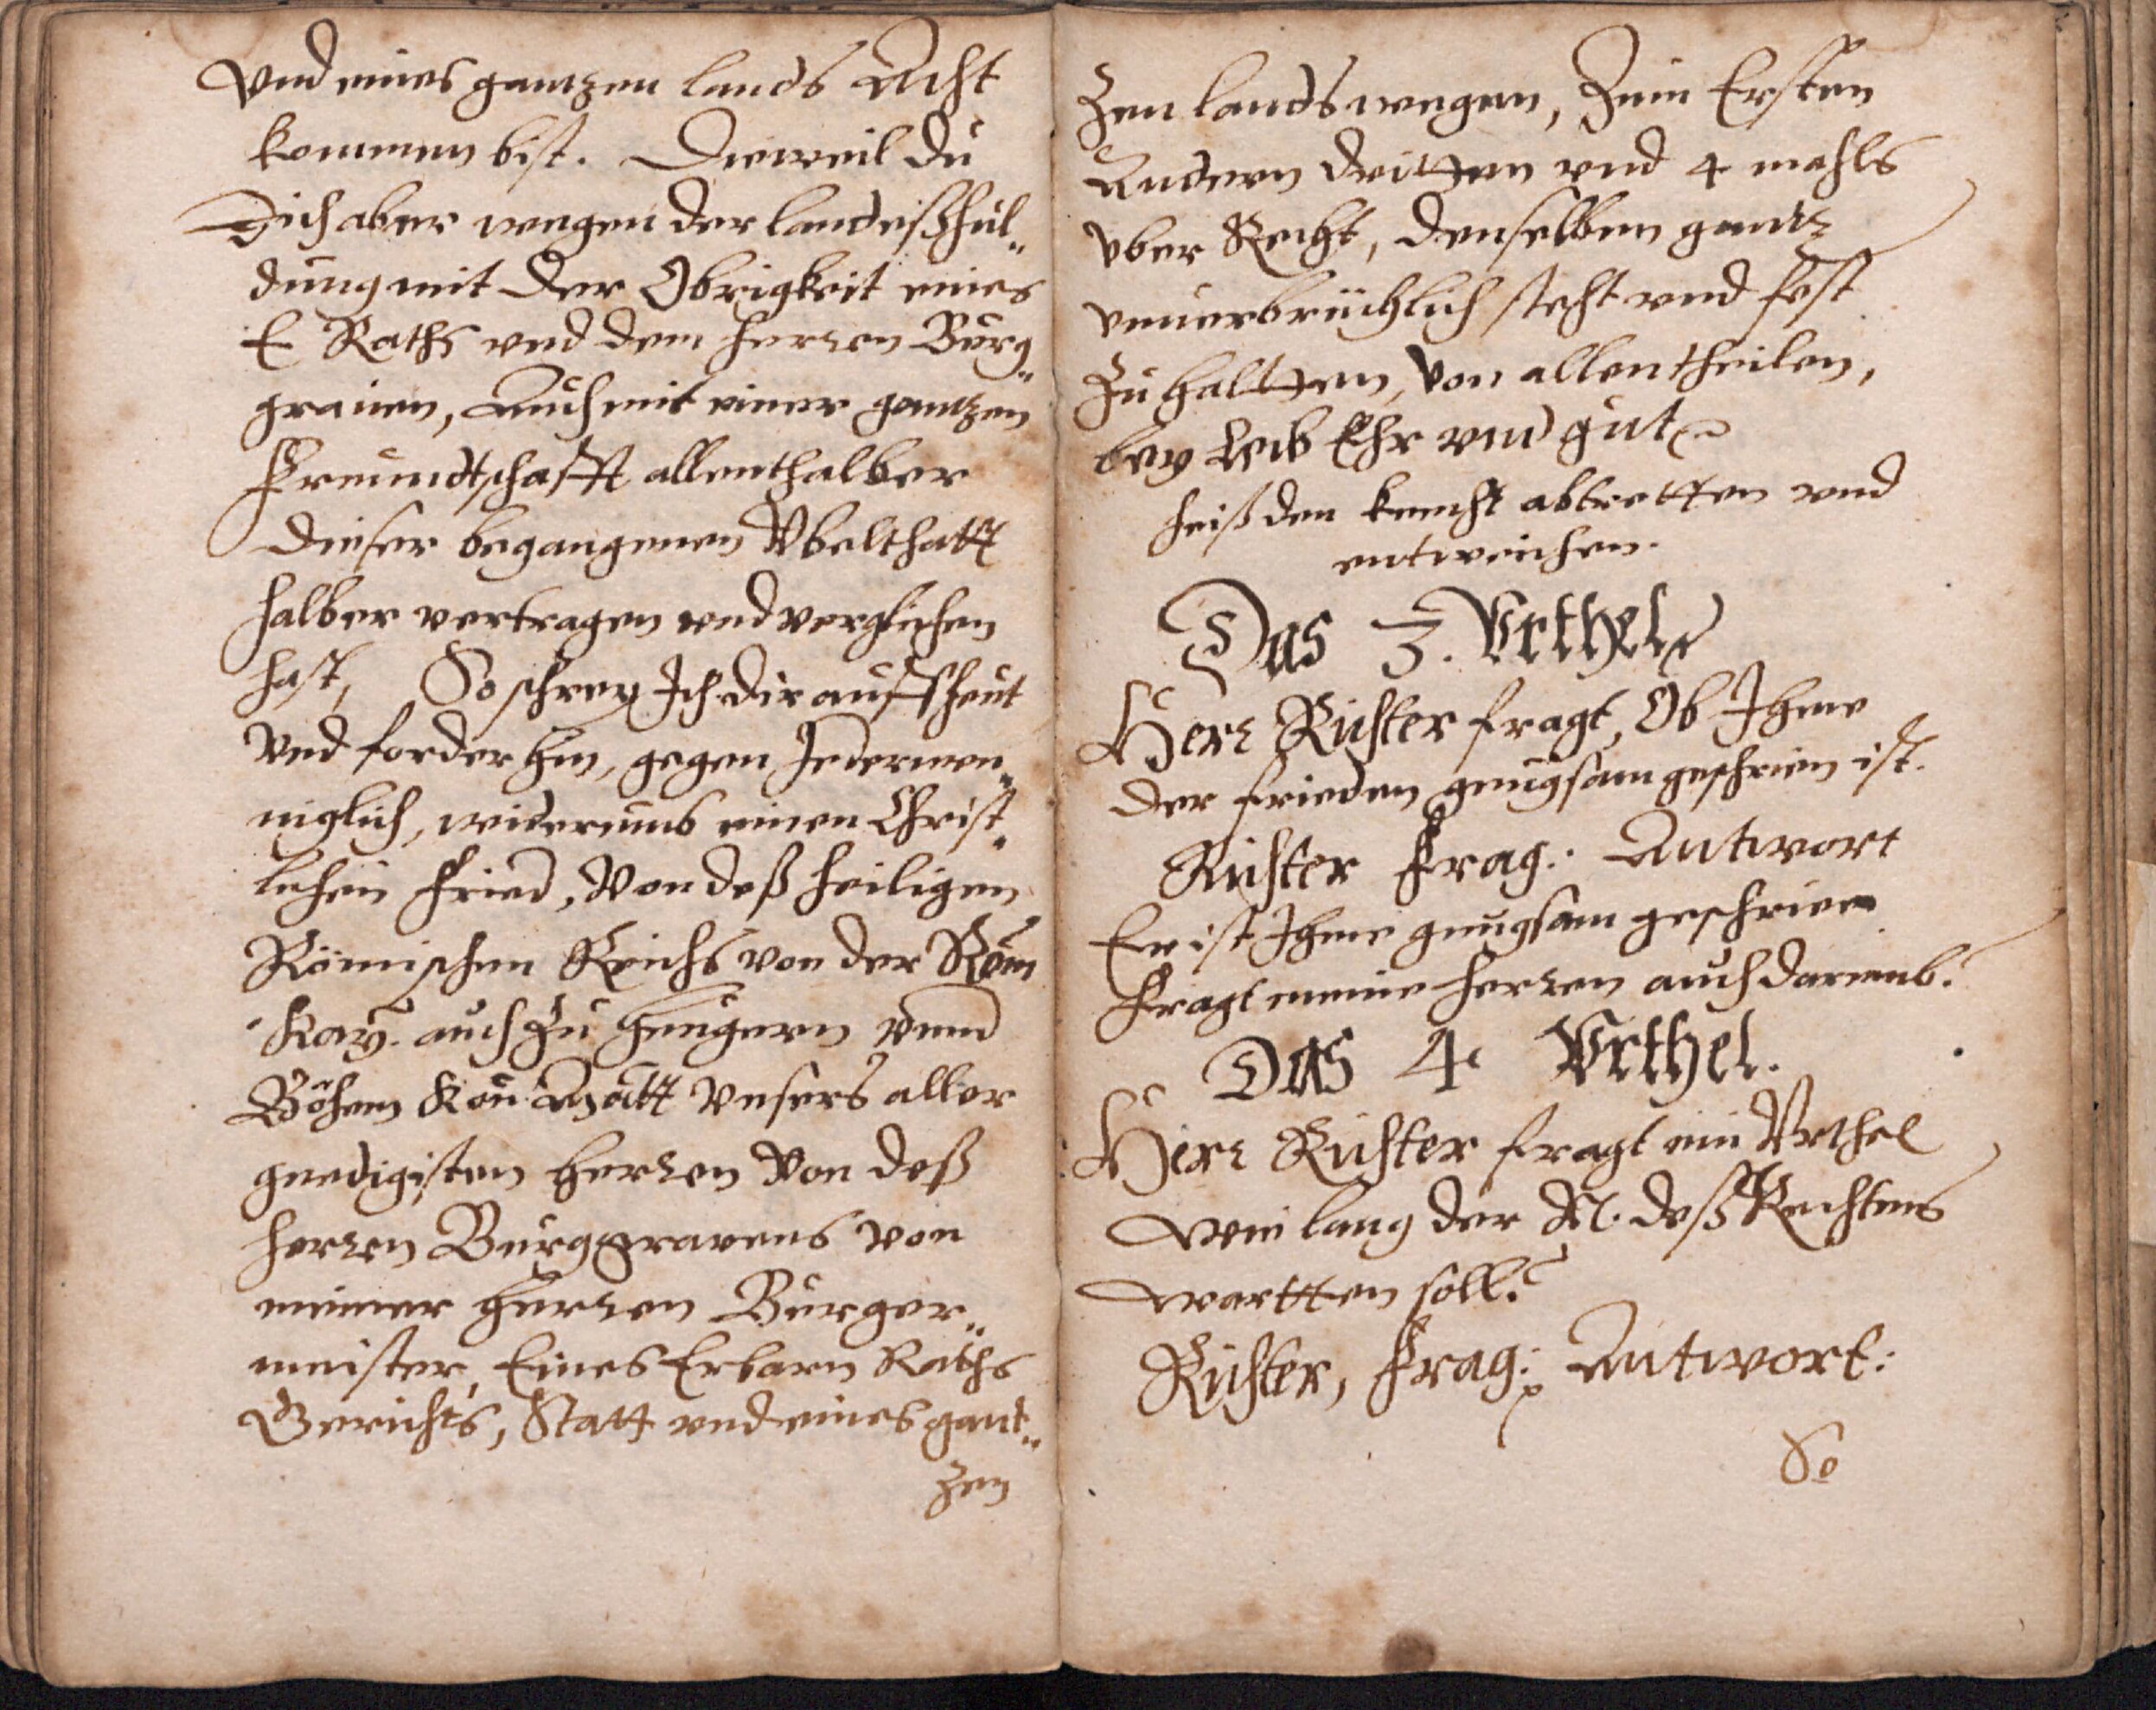 Vnd eines gantzen lands Acht
kommen bist. Dieweil du
Dich aber wegen der landeßhul„
dung mit der Obrigkeit eines
E Raths vnd dem herren Burg„
grauen, Auch mit einer gantzen
Freundtschafft allenthalber
dieser begangenen Vbelthatt
halber vertragen vnd verglichen
hast, So schrey Ich dir auff heut
Vnd forder hin, gegen Jedermen„
niglich, widerumb einen Christ„
lichen Fried, Von deß heiligen
Römischen Reichs von der Röm
Kay. auch zu Hungern vnnd
Böhem Kön: Matt Vnsers aller
gnedigisten Herren Von deß
herren Burggravens von
meiner Herren Burger„
meister, Eines Erbarn Raths
Gerichts, Statt vnd eines gant„
zen
Zen lands wegen, Zum Ersten
Andern dritten vnd 4 mahls
vber Recht, denselben gantz
vnuerbrüchlich steht vnd fest
Zu haltten, Von allen theilen,
bey Leib Ehr vnd gut
heiß den knecht abtretten vnd
entweichen.
Das 3. Vrthel
Herr Richter fragt, Ob Ihme
der frieden gnugsam geschrien ist.
Richter Frag: Antwort
Er ist Ihme gnugsam geschrien
Fragt meine herren auch darumb.
Das 4. Vrthel.
Herr Richter fragt ein Vrthel
Wie lang der N. deß Rechtens
wartten soll?
Richter, Frag: Antwort:
So